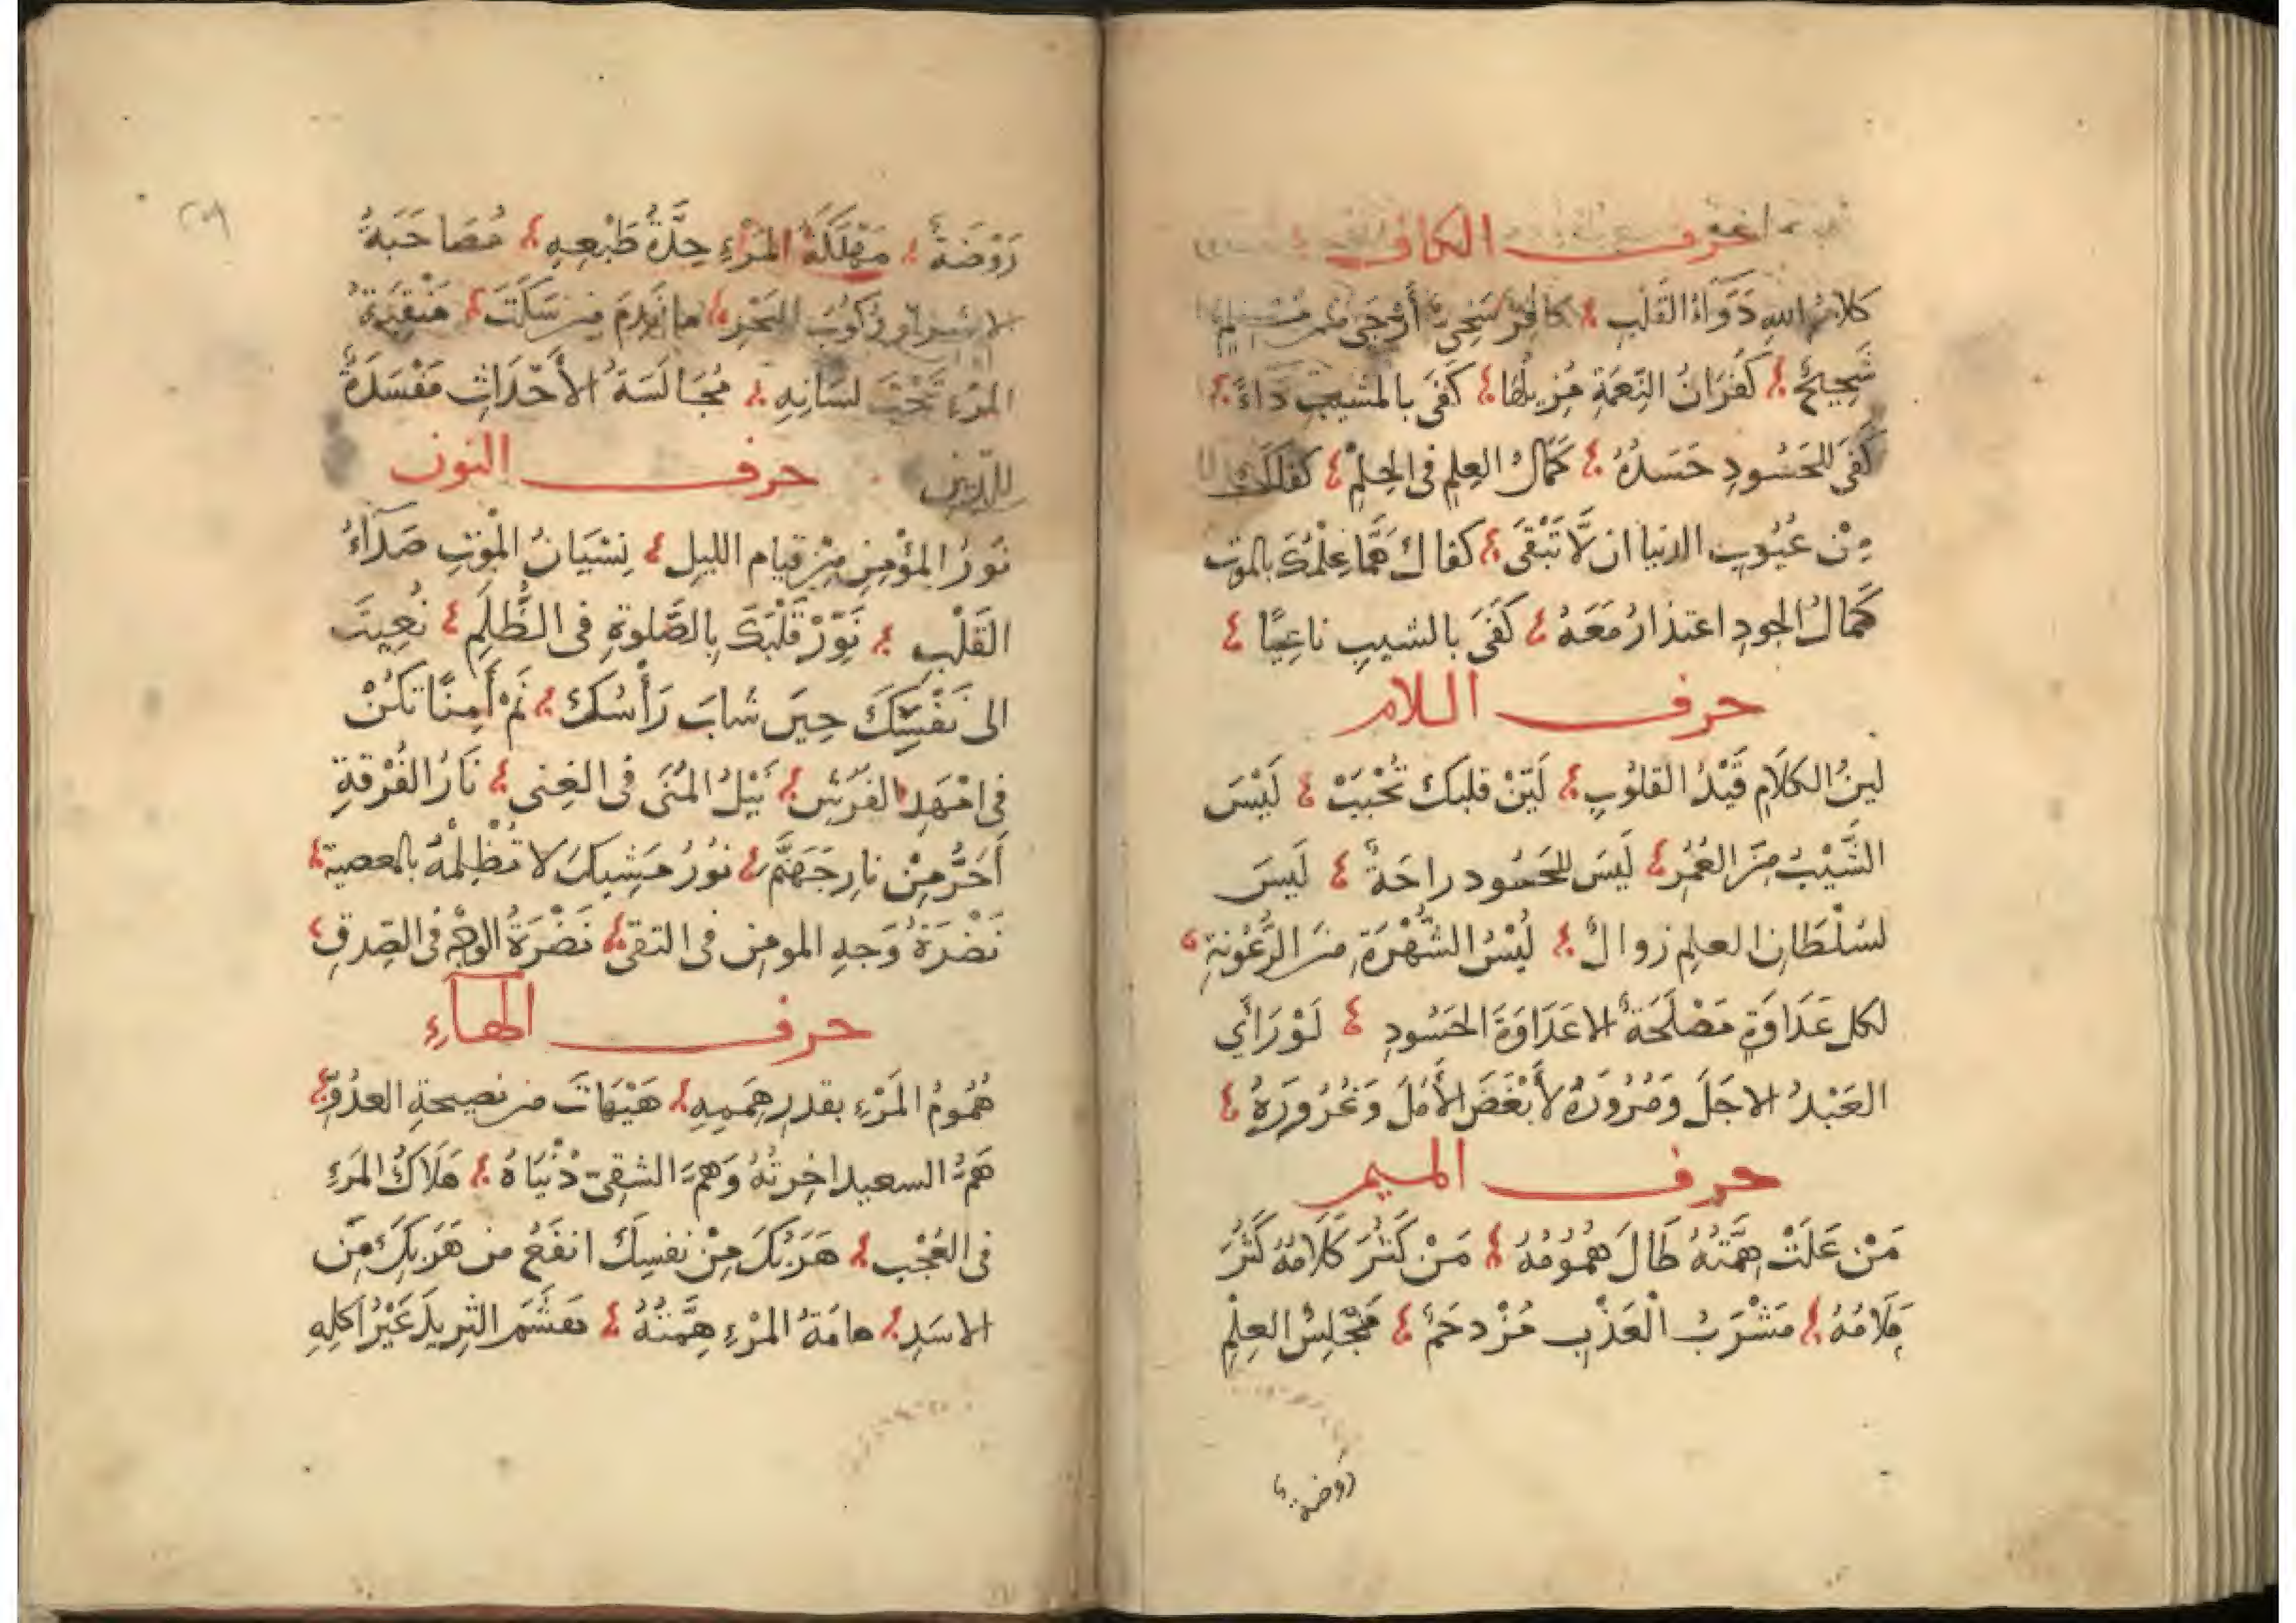 حرف الكاف
كلامُ اللهِ دَوَاءُ القَلْبِ ؛ كافِرٌ سَخِيٌّ أَرْجَى من مُسْلِمٍ
شَحِيحٍ ؛ كُفْرَانُ النِّعمَةِ مُزِيلُهَا ؛ كَفَى بالمشيبِ دَاءً ؛
كَفَى للحَسُودِ حَسَدُهُ ؛ كَمَالُ العِلمِ فى الحِلْمِ ؛ كفاكَ
مِنْ عُيُوبِ الدنيا ان لَّا تَبْقَى ؛ كفاك هَمًّا عِلْمُكَ بالموتِ
كَمَالُ الجودِ اعتذارُ مَعَهُ ؛ كَفَى بالشيبِ ناعِيًا ؛
حرف اللام
لينُ الكلَامِ قَيْدُ القلُوبِ ؛ لَيِّنْ قلبك تُحْبَبْ ؛ لَيْسَ
الشَّيْبُ مِنَ العُمُرِ ؛ لَيسَ للحَسُود راحَةٌ ؛ لَيسَ
لسُلْطَانِ العلِمِ زوالٌ ؛ لَيْسُ الشُّهْرَةِ مِنَ الرُّعُونةِ ؛
لكل عَدَاوَةٍ مَصْلَحَةٌ الا عَدَاوَةَ الحَسُودِ ؛ لَوْ رَاَى
العَبْدُ الاجَلَ وَمُرُورَهُ لأَبْغَضَ الأَمَلَ وَغُرُورَهُ ؛
حرف الميم
مَنْ عَلَتْ هِمَّتُهُ طَالَ هُمُومُهُ ؛ مَنْ كَثُرَ كَلَامُهُ كَثُرَ
مَلَامُهُ ؛ مَشْرَبُ الْعَذْبِ مُزْدحَمٌ ؛ مَجْلِسُ العِلْمِ
روضة
رَوْضَةٌ ؛ مَهْلَكَةُ المَرْءِ حِدَّةُ طَبْعِهِ ؛ مُصَاحَبَةُ
الاشرارِ رُكُوبُ البَحْرِ ؛ ما نَدِمَ من سَكَتَ ؛ مَنْقِبَةُ
المَرْءِ تَحْتَ لسَانِهِ ؛ مُجَالَسَةُ الأَحْدَاثِ مَفْسَدَةٌ
للدّينِ حرف النون
نُورُ المؤْمِنِ مِنْ قيام الليلِ ؛ نِسْيَانُ المْوتِ صَدَآءُ
القَلْبِ ؛ نَوِّرْ قَلْبَكَ بِالصَّلوةِ فى الظُّلَمِ ؛ نُعِيتَ
الى نَفْسِكَ حِينَ شابَ رَأْسُكَ ؛ نَمْ أَمِنًا تكُنْ
فى امْهَدِ الفَرْشِ ؛ نَيْلُ المُنَى فى الغِنى ؛ نَارُ الفُرْقةِ
أَحَرُّ مِنْ نارِ جَهَنَّمَ ؛ نوُرُ مَشِيبكَ لا تُظْلِمْهُ بالمعصية ؛
نَضْرَةُ وَجهِ المومِنِ فى التقى ؛ نَضْرَةُ الوَجْهِ فى الصِّدقِ ؛
حرف الهآءِ
هُمُومُ المَرْءِ بقدرِ هِمَمِهِ ؛ هَيْهَاتَ من نصيحةِ العدُوِّ ؛
هَمُّ السعيد اخِرتُهُ وَهمُّ الشقِىّ دُنْيَاهُ ؛ هَلَاكُ المَرْءِ
فى العُجْبِ ؛ هَرَبُكَ مِنْ نفسِكَ انفَعُ من هَرَبِكَ مِنَ
الاسَدِ ؛ هامَةُ المرْءِ هِمَّتُهُ ؛ هَشَمَ الثرِيدَ غَيْرُ اَكلِهِ